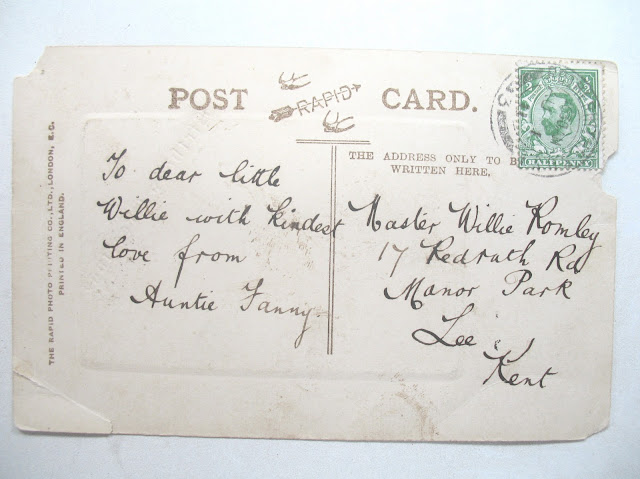 POST CARD.
RAPID
THE ADDRESS ONLY TO BE
WRITTEN HERE.
HALFPENNY
To dear little
Willie with kindest
love from
Auntie Fanny
Master Willie Romley
17 Redruth Rd
Manor Park
Lee
Kent
THE RAPID PHOTO PRINTING CO., LTD., LONDON, E.C.
PRINTED IN ENGLAND.